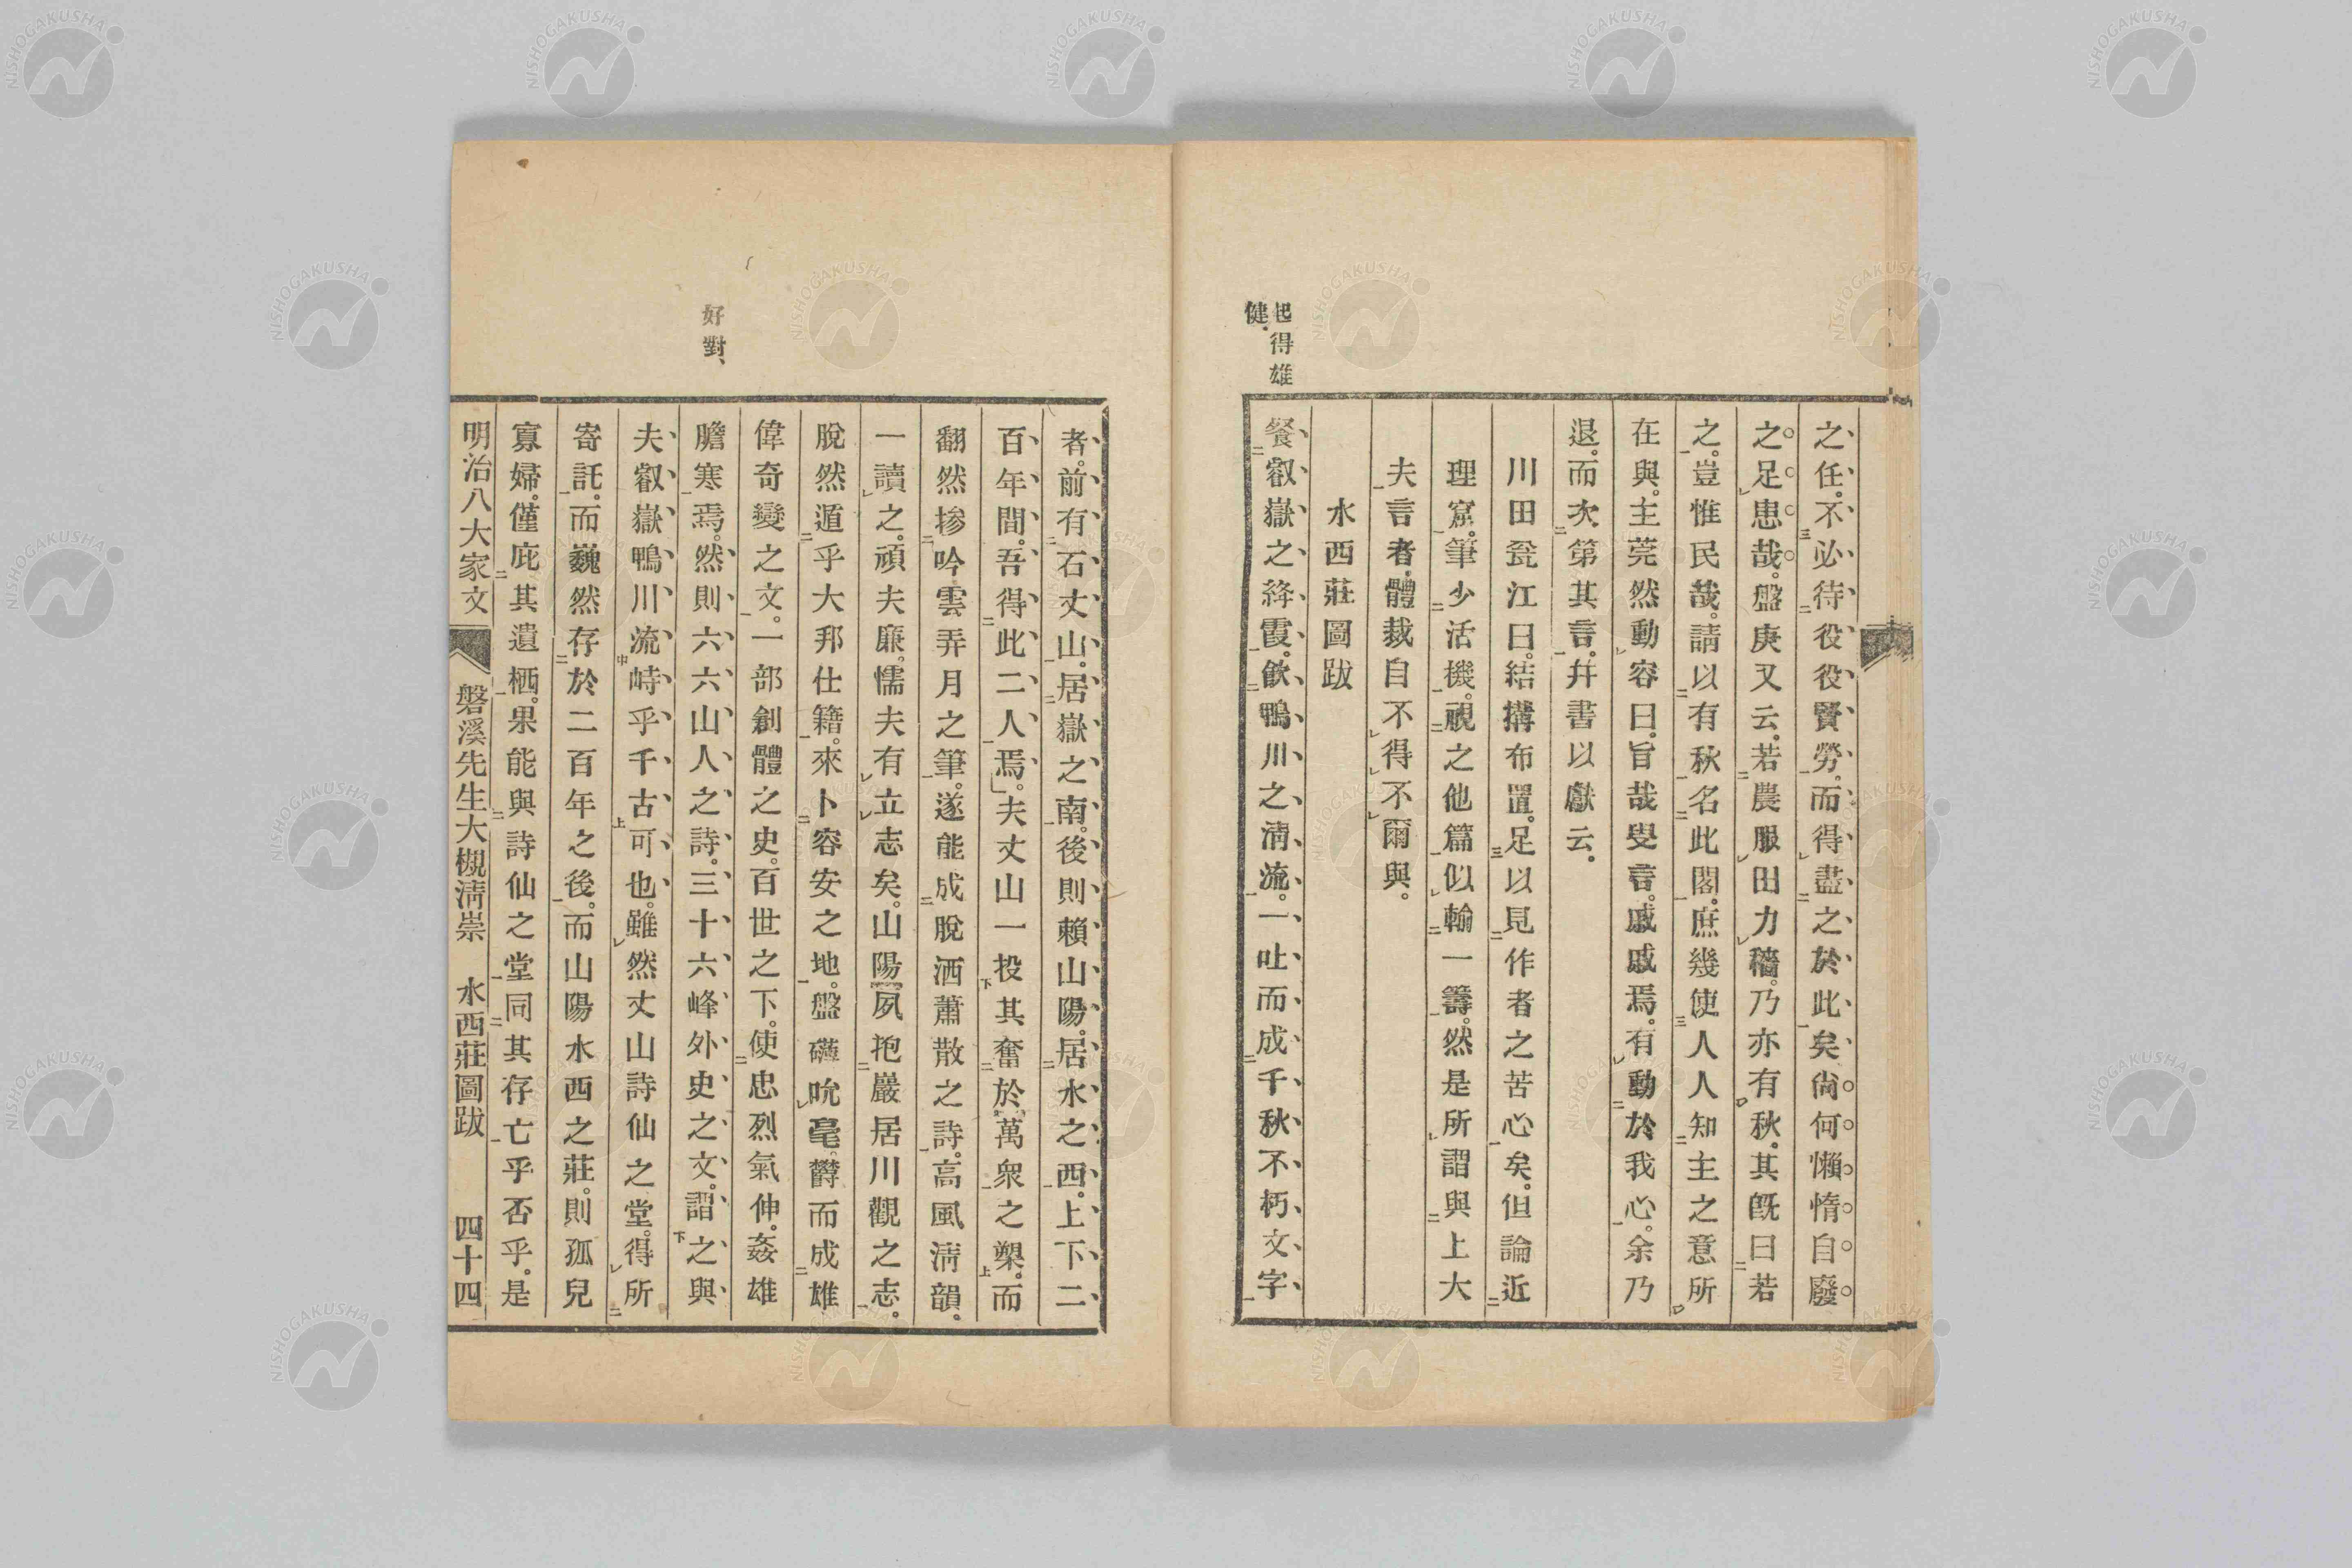 之任。不必待役役賢勞。而得盡之於此矣。尙何懶惰自廢
之足患哉。盤庚又云。若農服田力穡。乃亦有秋。其既曰若
之。豈惟民哉。請以有秋名此閣。庶幾使人人知主之意所
在與。主莞然動容曰。旨哉叟言。戚戚焉。有動於我心。余乃
退。而次第其言。幷書以獻云。
川田瓮江曰。結搆布置。足以見作者之苦心矣。但論近
理窟。筆少活機。視之他篇似輸一籌。然是所謂與上大
夫言者。體裁自不得不爾與。
水西莊圖跋
起得雄
健。
餐叡嶽之絳霞。飮鴨川之淸流。一吐而成千秋不朽文字
者。前有石丈山。居嶽之南。後則賴山陽。居水之西。上下二
百年間。吾得此二人焉。夫丈山一投其奮於萬衆之槊。而
翻然摻吟雲弄月之筆。遂能成脫洒蕭散之詩。高風淸韻。
一讀之。頑夫廉。懦夫有立志矣。山陽夙抱巖居川觀之志。
脫然遁乎大邦仕籍。來卜容安之地。盤礴吮毫。欝而成雄
偉奇變之文。一部創體之史。百世之下。使忠烈氣伸。姦雄
好對、
膽寒焉。然則六六山人之詩。三十六峰外史之文。謂之與
夫叡嶽鴨川流峙乎千古可也。雖然丈山詩仙之堂。得所
寄託。而巍然存於二百年之後。而山陽水西之莊。則孤兒
寡婦。僅庇其遺栖。果能與詩仙之堂同其存亡乎否乎。是
明治八大家文 磐溪先生大槻淸崇 水西莊圖跋 四十四
NISHOGAKUSHA